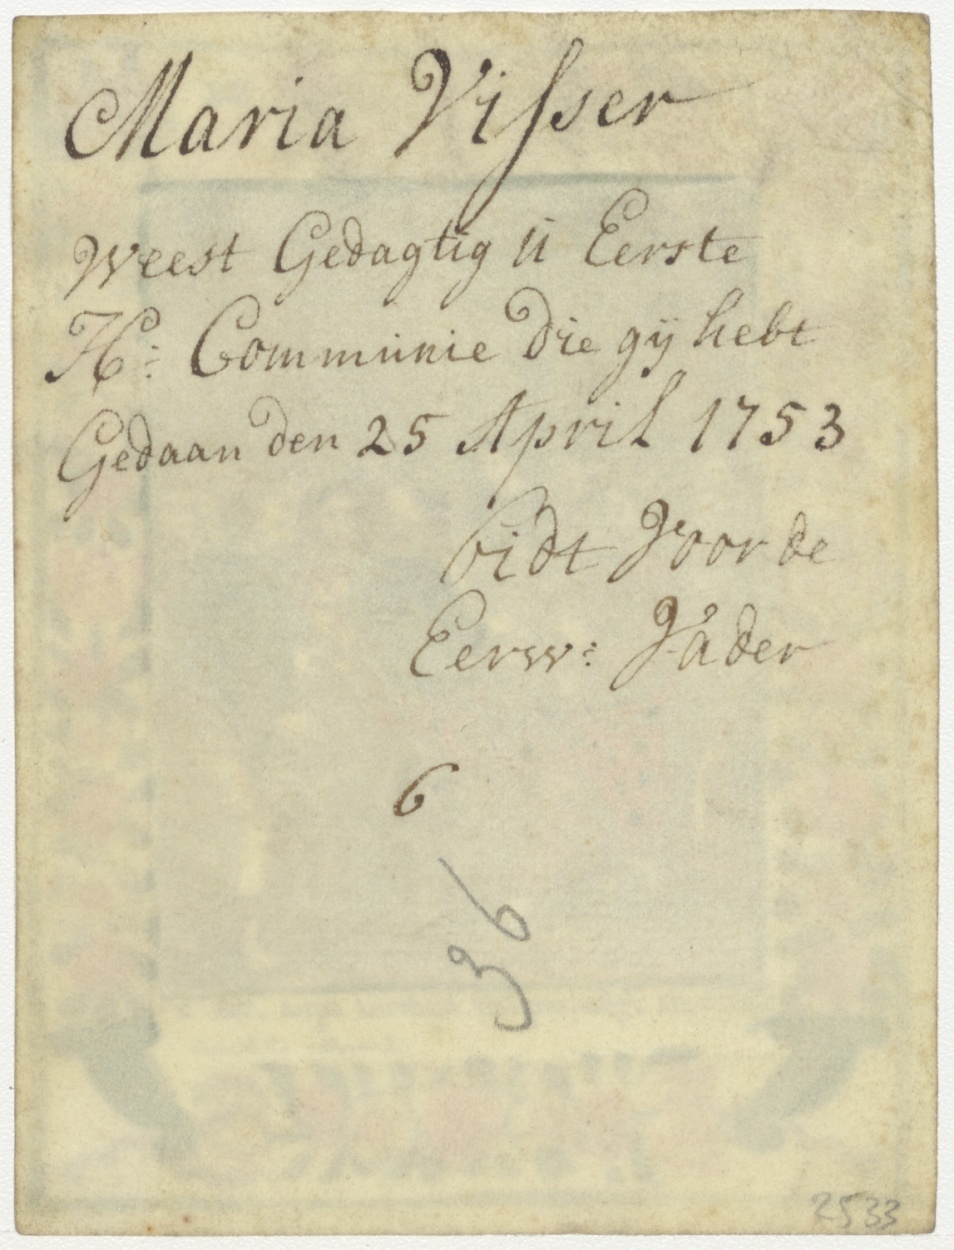 Maria Viſser
Weest Gedagtig ú Eerste
H: Communie die gÿ hebt
Gedaan den 25 April 1753
bidt Voor de
Eerw: Vader
6
36
2533